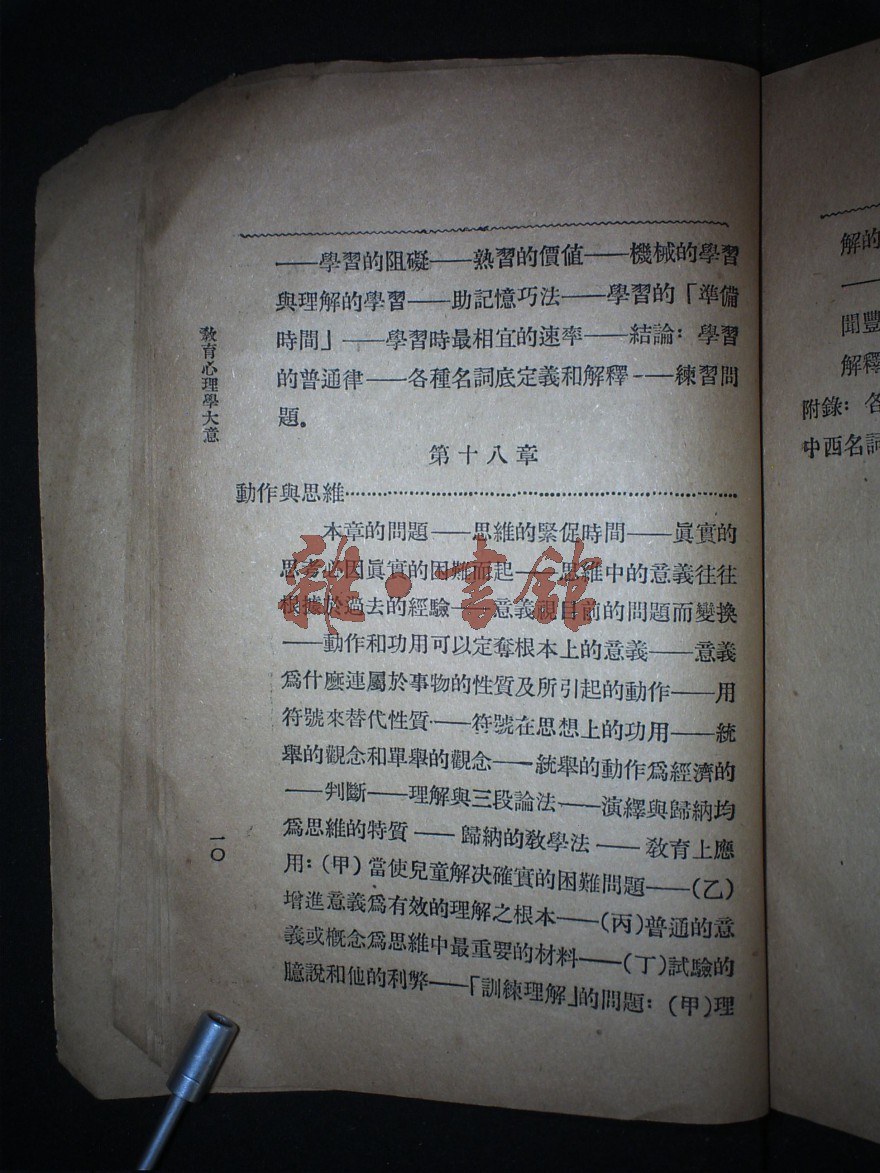 ——學習的阻礙——熟習的價值——機械的學習
與理解的學習——助記憶巧法——學習的「準備
時間」——學習時最相宜的速率——結論：學習
的普通律——各種名詞底定義和解釋——練習問
題。
第十八章
動作與思維……………………………………………
本章的問題——思維的緊促時間——眞實的
思考必因眞實的困難而起——思維中的意義往往
根據於過去的經驗——意義視目前的問題而變換
——動作和功用可以定奪根本上的意義——意義
爲什麽連屬於事物的性質及所引起的動作——用
符號來替代性質——符號在思想上的功用——統
舉的觀念和單舉的觀念——統舉的動作爲經濟的
——判斷——理解與三段論法——演繹與歸納均
爲思維的特質——歸納的敎學法——敎育上應
用：(甲)當使兒童解決確實的困難問題——(乙)
增進意義爲有效的理解之根本——(丙)普通的意
義或概念爲思維中最重要的材料——(丁)試驗的
臆說和他的利弊——「訓練理解」的問題：(甲)理
敎育心理學大意
一〇
解的
——
聞豐
解釋
附錄：各
中西名詞
雜·書館